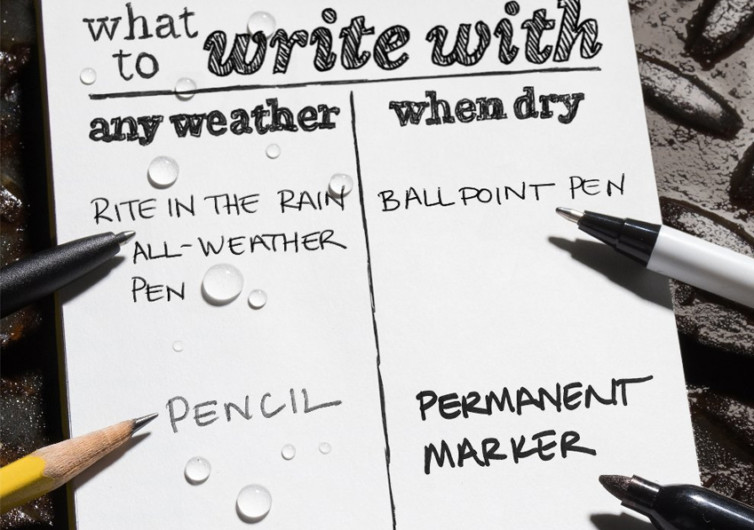 what
to write with
any weather
RITE IN THE RAIN
ALL-WEATHER
PEN
PENCIL
when dry
BALLPOINT PEN
PERMANENT
MARKER